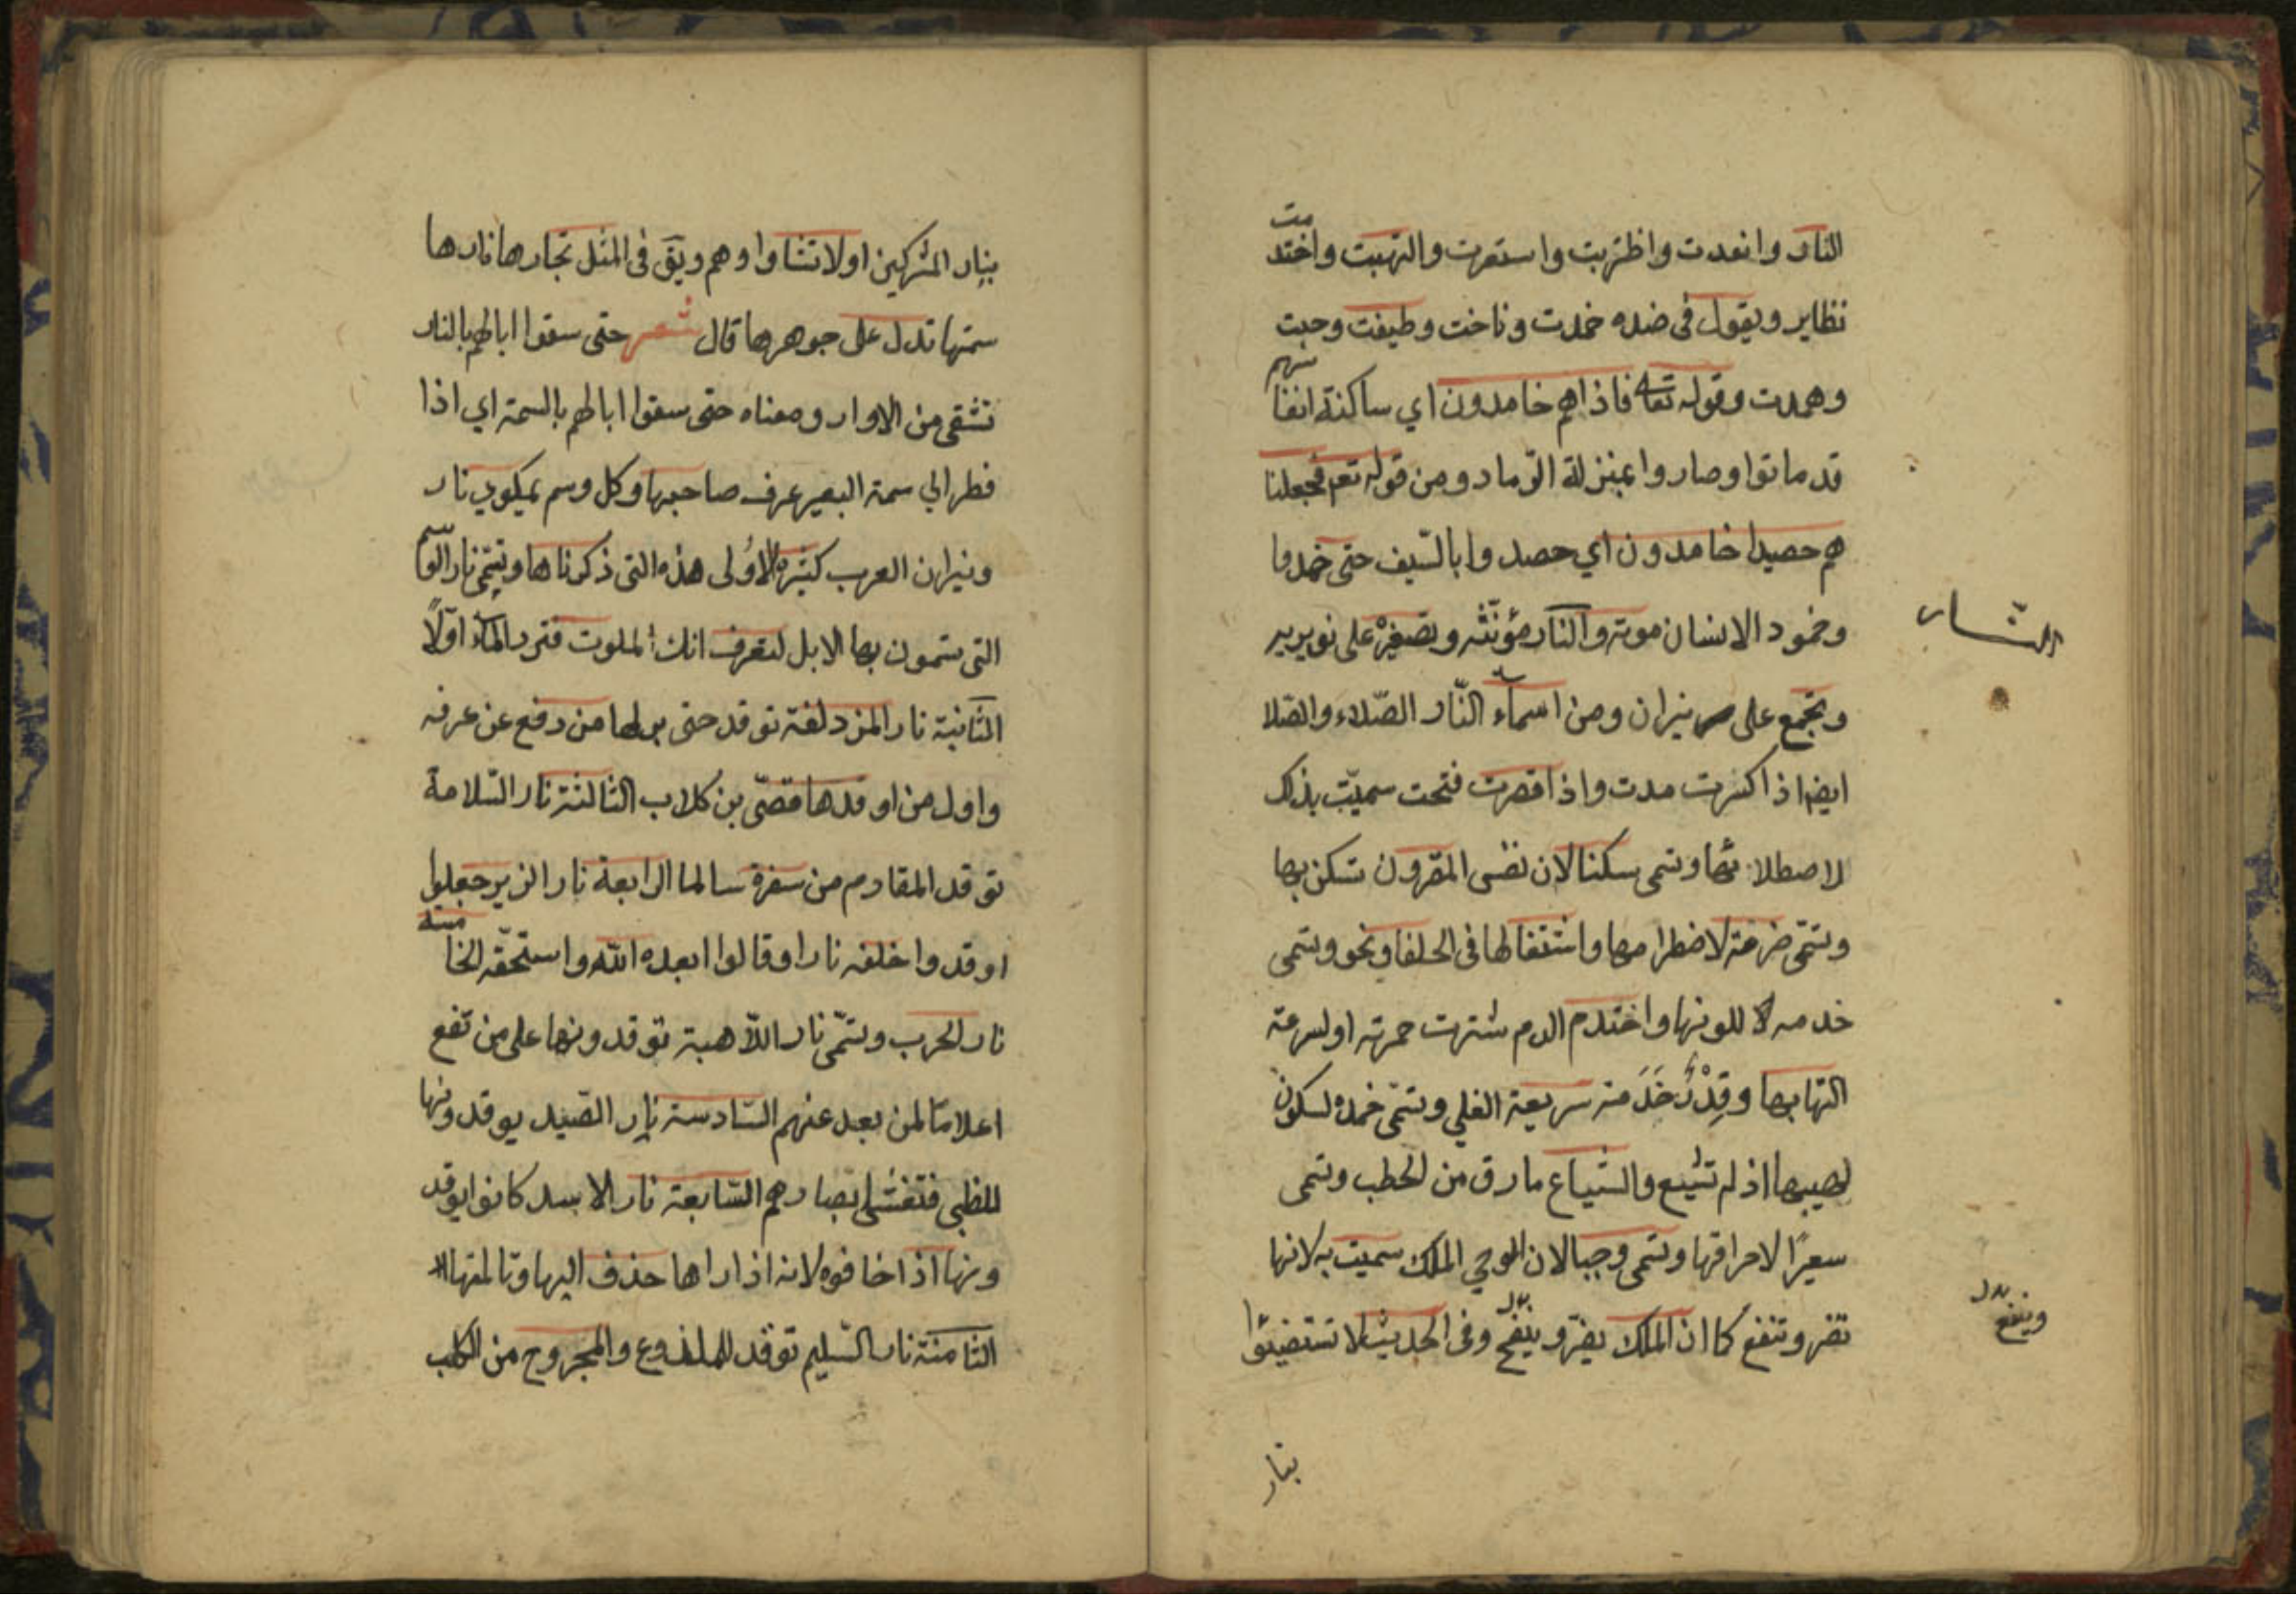 النار وانعدت واظزبت واستعرت والتهبت واختد
مت
نظاير ويقول فى ضده خمدت وناخت وطيفت وحبت
وهمدت وقوله تعا فاذاهم خامدون اي ساكنة انفا
سهم
قد ماتوا وصاروا بمنزلة الرّماد ومن قوله تعم فجعلنا
هم حصيدا خامدون اي حصد وا بالسّيف حتى خمدوا
وخمود الانسان موته والنار مؤنّثه وتصغيره على نويريه
النّار
وتجمع على نيران ومن اسمآء النّار الصّلاء والصّلا
ايضا اذا كسرت مدت واذا قصرت فتحت سميّت بذلك
لاصطلا بها وتسمى سكنا لان نفس المقرون تسكن بها
وتسمّى ضرمة لاضطرامها واشتعالها فى الحلفا ونحو وتسمى
خدمه للونها واختدم الدم شترت حمرته او لسرعة
التهابها وقِدْرٌ خَدَ مته سريعة الغلي وتسمّى خمده لسكون
لهيبها اذ لم تشيع والشياع مارق من الحطب وتسمى
سعيرًا لاحراقها وتسمى وحيا لان الوحي الملك سميت به لانها
تضر وتنفع كما ان الملك يضرّ و ينفع وفى الحديث لا تستضيئوا
وينفع بدل
بنار
بنار المشركين اولا تشاوا وهم ويق فى المثل نجارها نارها
سمتها تدل على جوهرها قال شعر حتى سقوا ابالهم بالنار
تشقى من الاوار ومعناه حتى سقوا ابالهم بالسمة اي اذا
فطر الي سمة البعير عرف صاحبها وكل وسم بمكوي نار
ونيران العرب كثيرة الاولى هذه التى ذكرناها وتسمّى نار الوسم
التى يسمون بها الابل لتعرف انك الملوت فترد المآء اوّلاً
الثانية نار المزدلفة توقد حتى يراها من دفع عن عرفه
واول من اوقدها قصّى بن كلاب الثالثة نار السّلامة
توقد للقادم من سفرة سالما الرابعة نار الزير جعلوا
اوقدوا خلفه نارا وقالوا ابعده الله واستحقّه الخا
مسة
نار الحرب وتسمّى نار اللّاهبة توقد ونها على من تفع
اعلامًا لمن بعد عنهم السّادسة نار الصّيد يوقدونها
للظبى فتغشى ابصارهم السّابعة نار الاسد كانوا يوقد
ونها اذا خافوه لانه اذا راها حذف اليها وتا لمتها
الثامنة نار السّليم توقد للملدوع والمجروح من الكلب